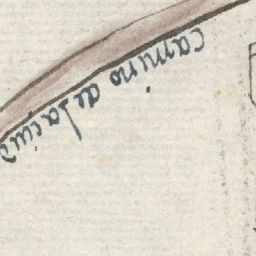 camino de la ciud